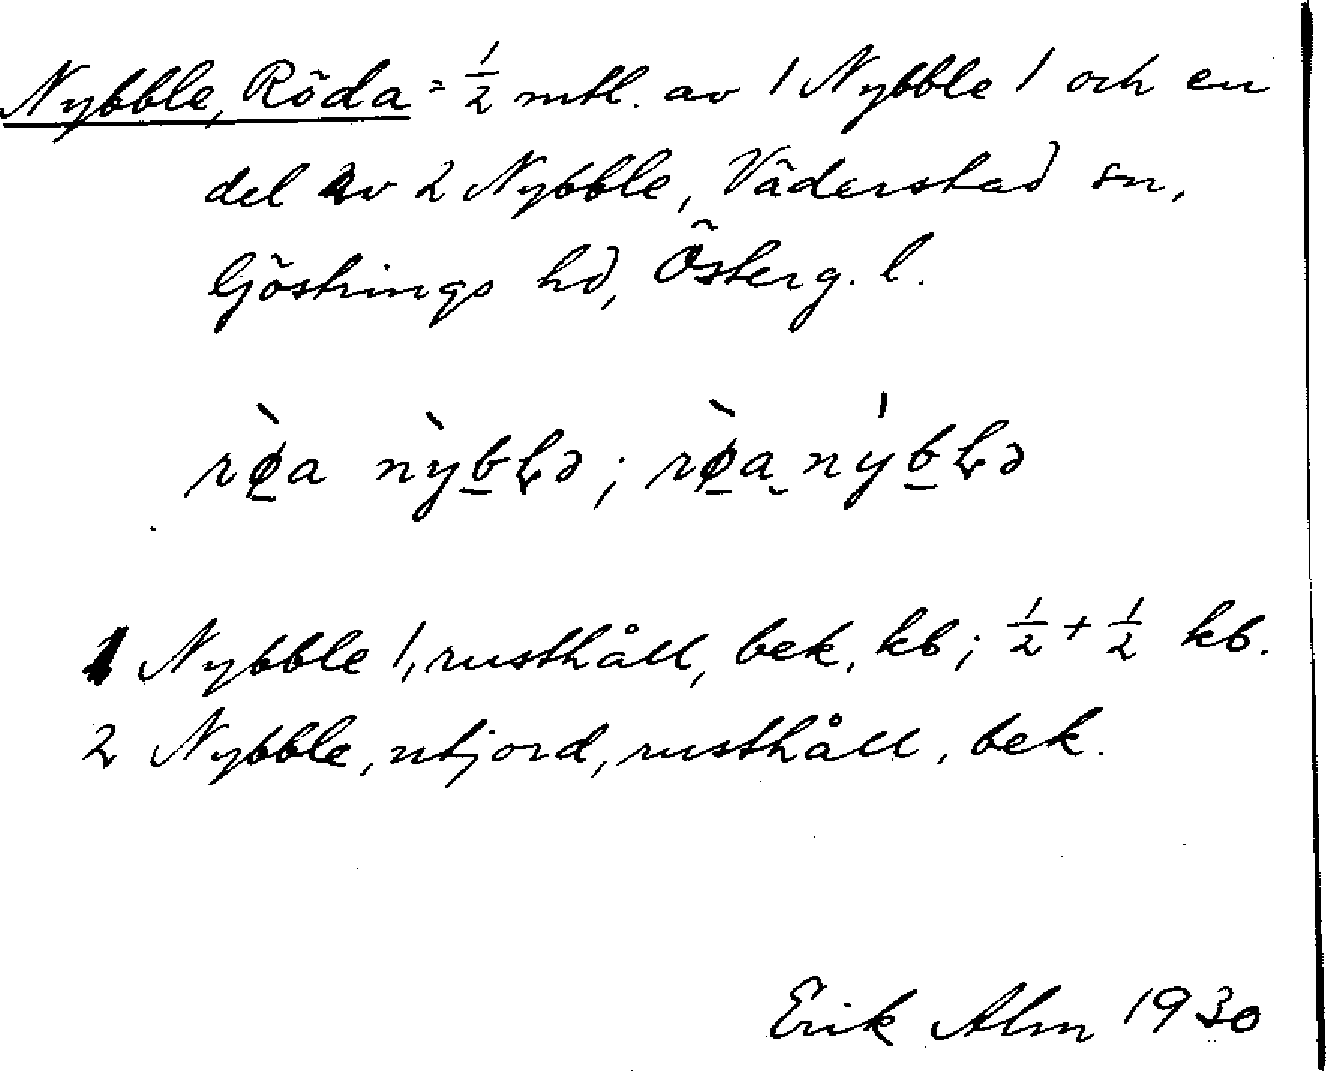 Nybble, Röda = ½ mtl. av 1 Nybble 1 och en
del av 2 Nybble, Väderstad sn,
Göstrings hd, Österg. l.
1 Nybble 1, rusthåll, bek, kb; ½ + ½ kb.
2 Nybble, utjord, rusthåll, bek.
Erik Alm 1930